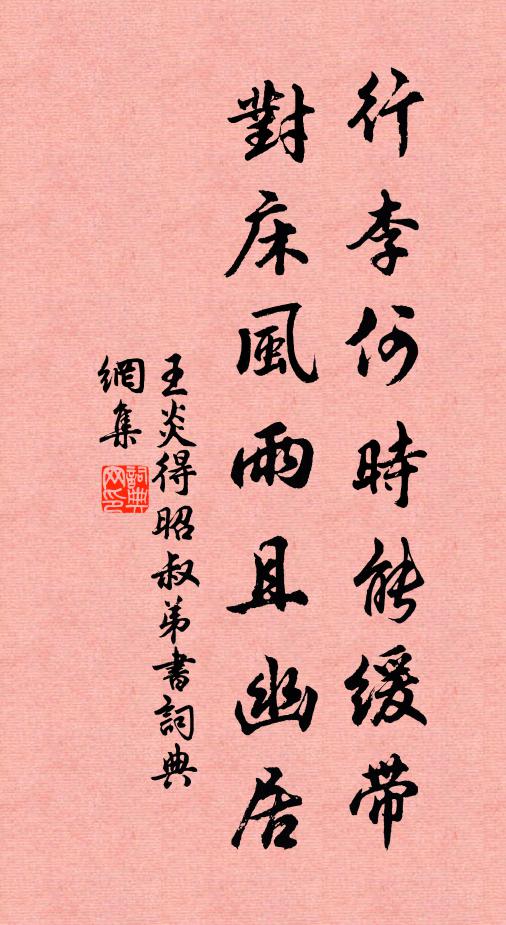 行李何時能緩带
對床風雨且幽居
王炎得昭叔弟書詞典
網集
詞典
网印